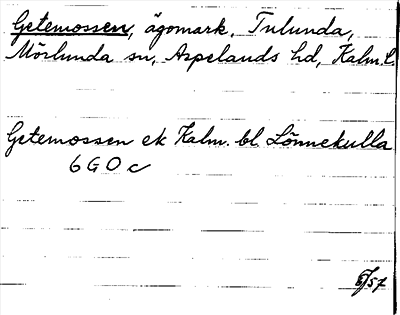 Getemossen, ägomark, Tulunda,
Mörlunda sn, Aspelands hd, Kalm. l.
Getemossen ek Kalm. bl. Lönnekulla
6 G O c
6/57